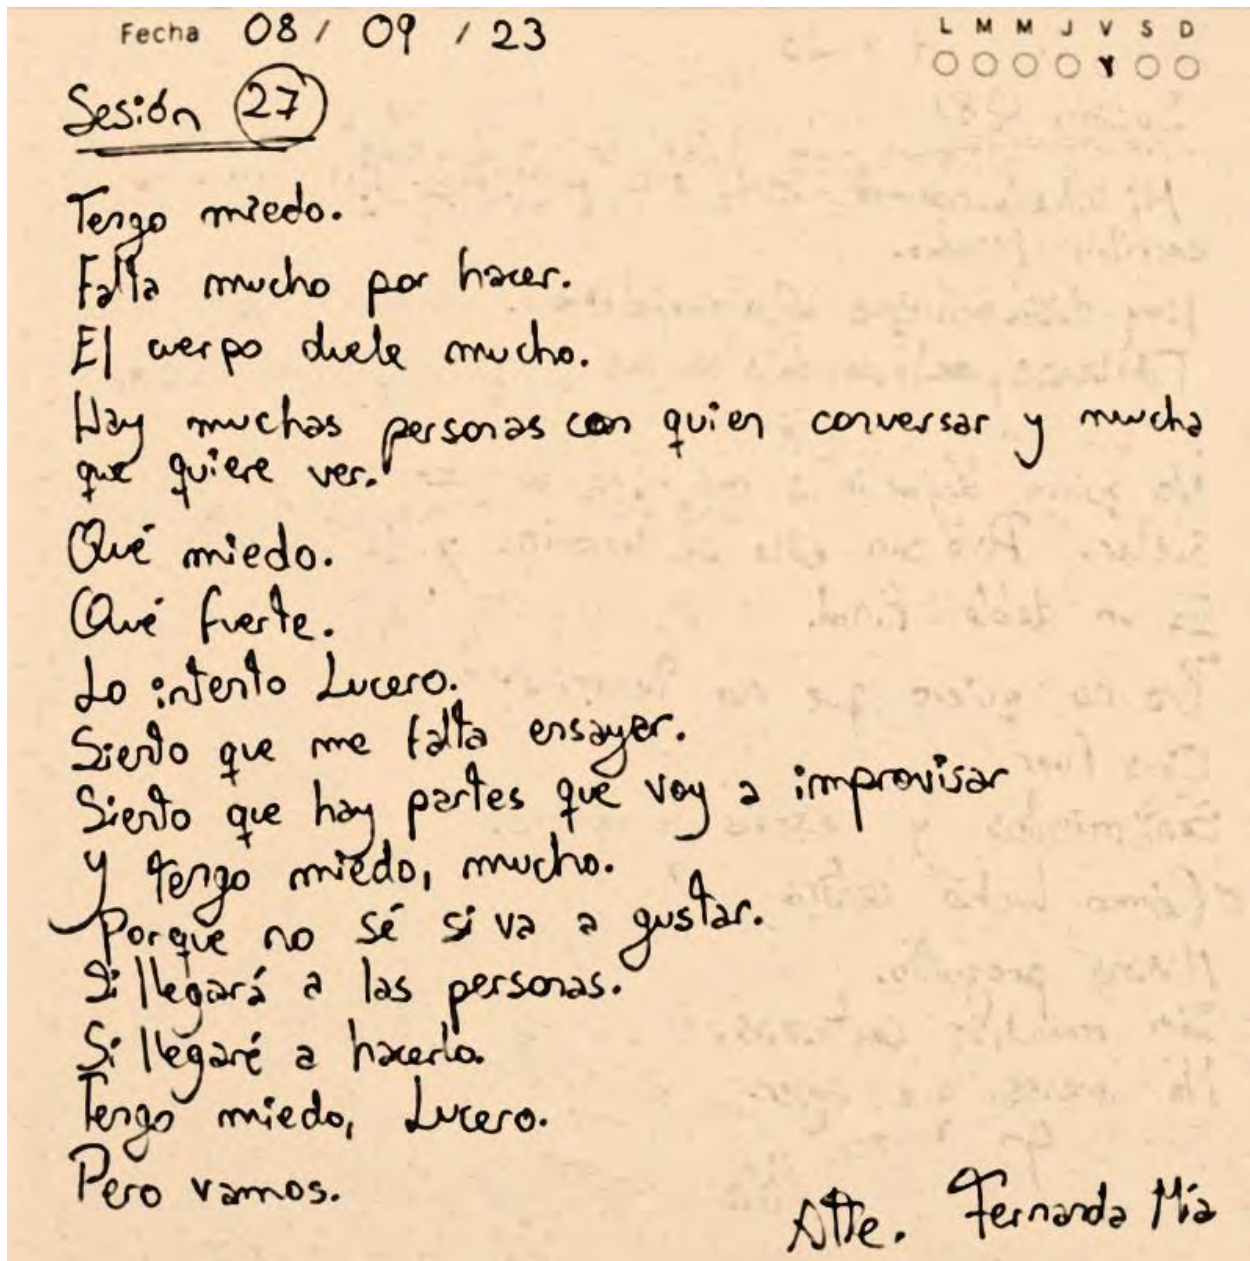 Fecha 08 / 09 / 23
L M M J V S D
Sesión 27
Tengo miedo.
Falta mucho por hacer.
El cuerpo duele mucho.
Hay muchas personas con quien conversar y mucha
que quiere ver.
Qué miedo.
Qué fuerte.
Lo intento Lucero.
Siento que me falta ensayar.
Siento que hay partes que voy a improvisar
y tengo miedo, mucho.
Porque no sé si va a gustar.
Si llegará a las personas.
Si llegaré a hacerlo.
Tengo miedo, Lucero.
Pero vamos.
Atte. Fernanda Mía